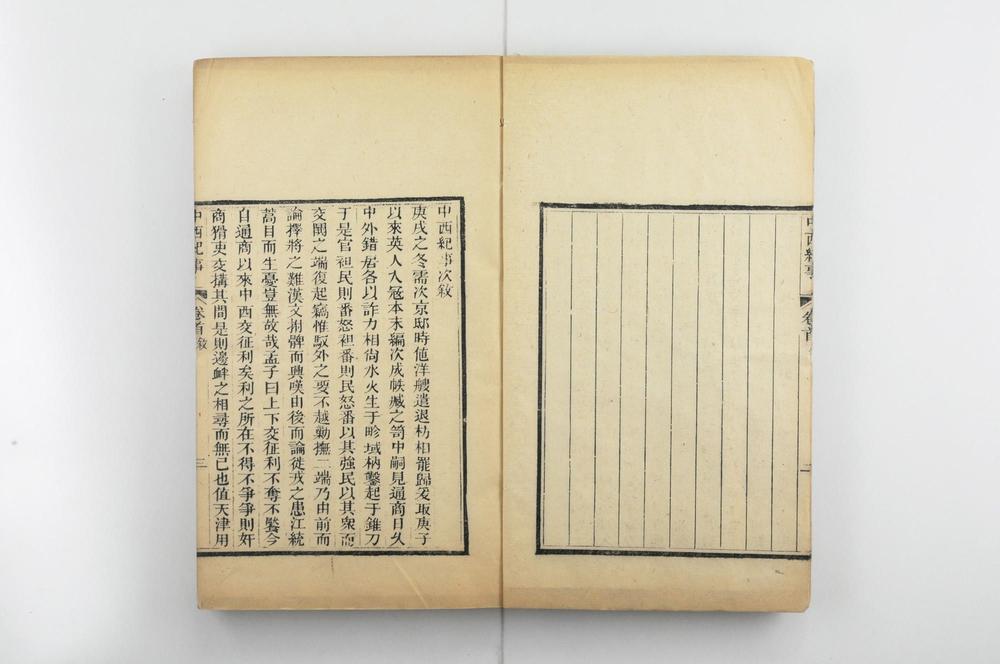 中西紀事
卷首
中西紀事次敘
庚戌之冬需次京邸時値洋艘遣退枋相罷歸爰取庚子
以來英人入寇本末編次成帙臧之笥中嗣見通商日久
中外錯居各以詐力相尙水火生于畛域枘鑿起于錐刀
于是官袒民則番怒袒番則民怒番以其強民以其衆而
交鬨之端復起竊惟馭外之要不越勦撫二端乃由前而
論擇將之難漢文拊髀而興嘆由後而論徙戎之患江統
蒿目而生憂豈無故哉孟子曰上下交征利不奪不饜今
自通商以來中西交征利矣利之所在不得不爭爭則奸
商猾吏交搆其間是則邊衅之相尋而無已也值天津用
中西紀事
卷首敘
三